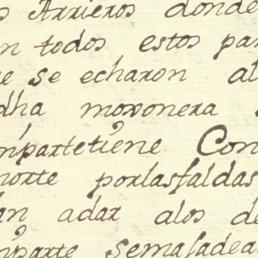 s Arrieros donde
n todos estos par
e se echaron al
dha moronera
npartetiene Con
norte porlasfaldas
an adar alos de
mparte Semasadea